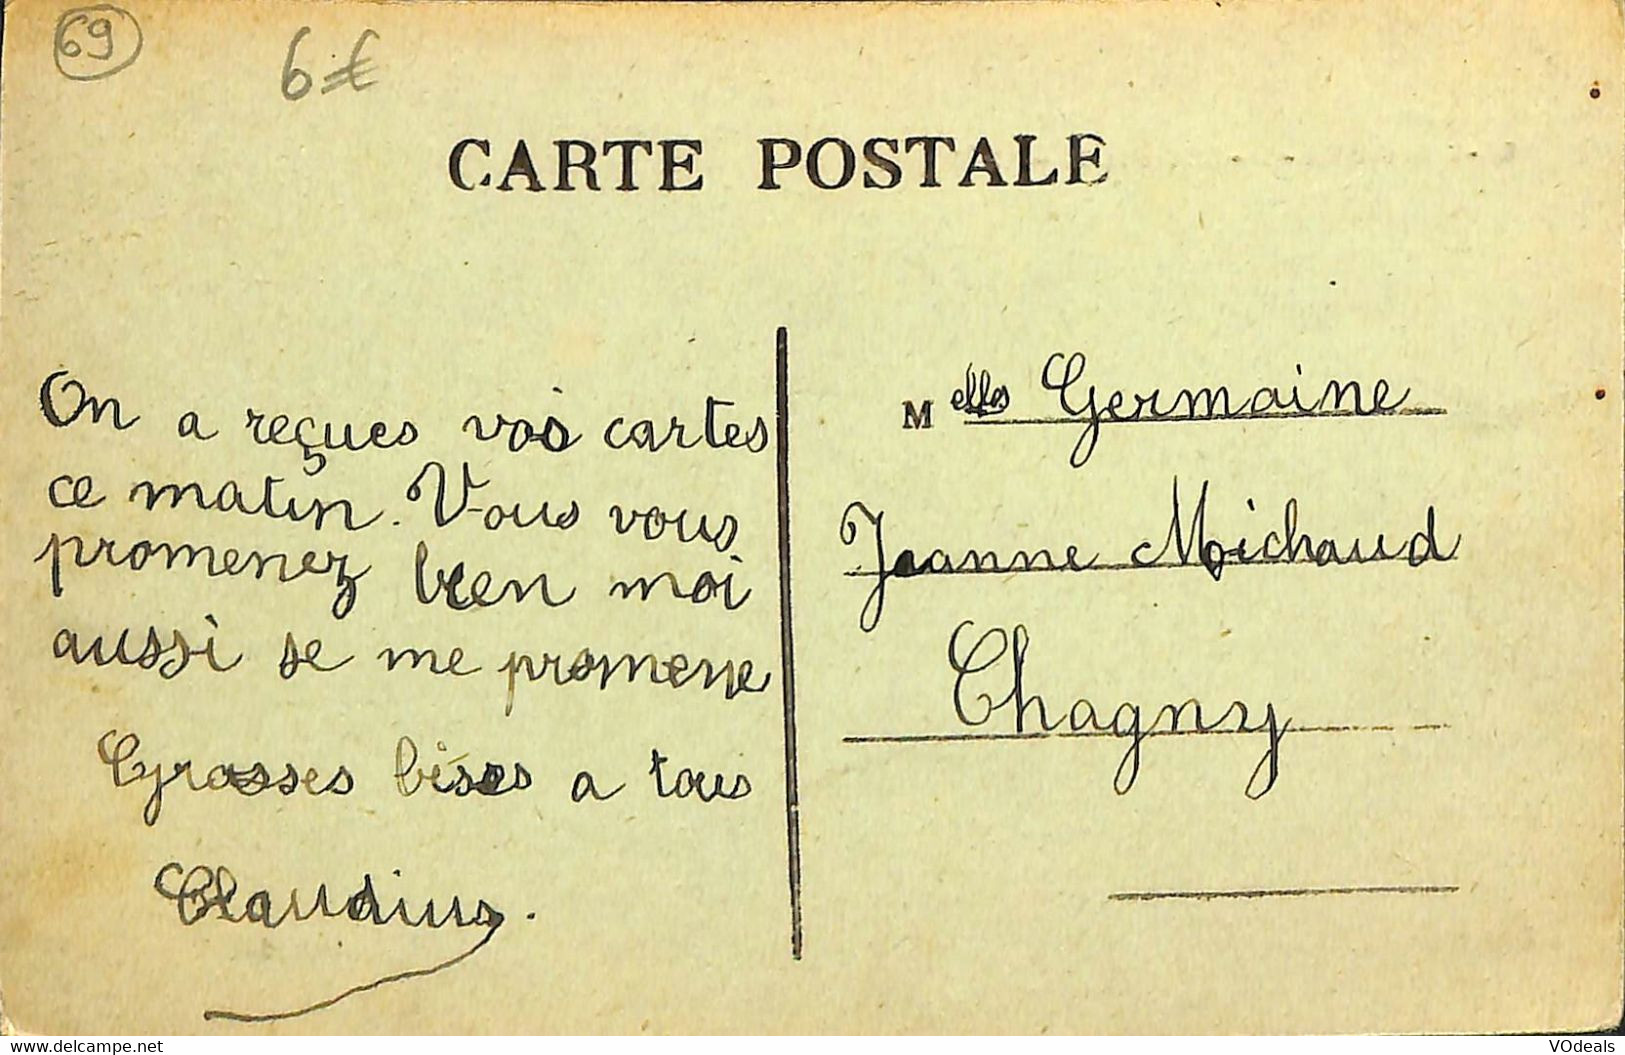 69
6 €
CARTE POSTALE
On a reçues vos cartes
ce matin. Vous vous
promenez bien moi
aussi je me promene
Grosses bises a tous
Claudius.
Melles Germaine
Jeanne Michaud
Chagny
www.delcampe.net
VOdeals